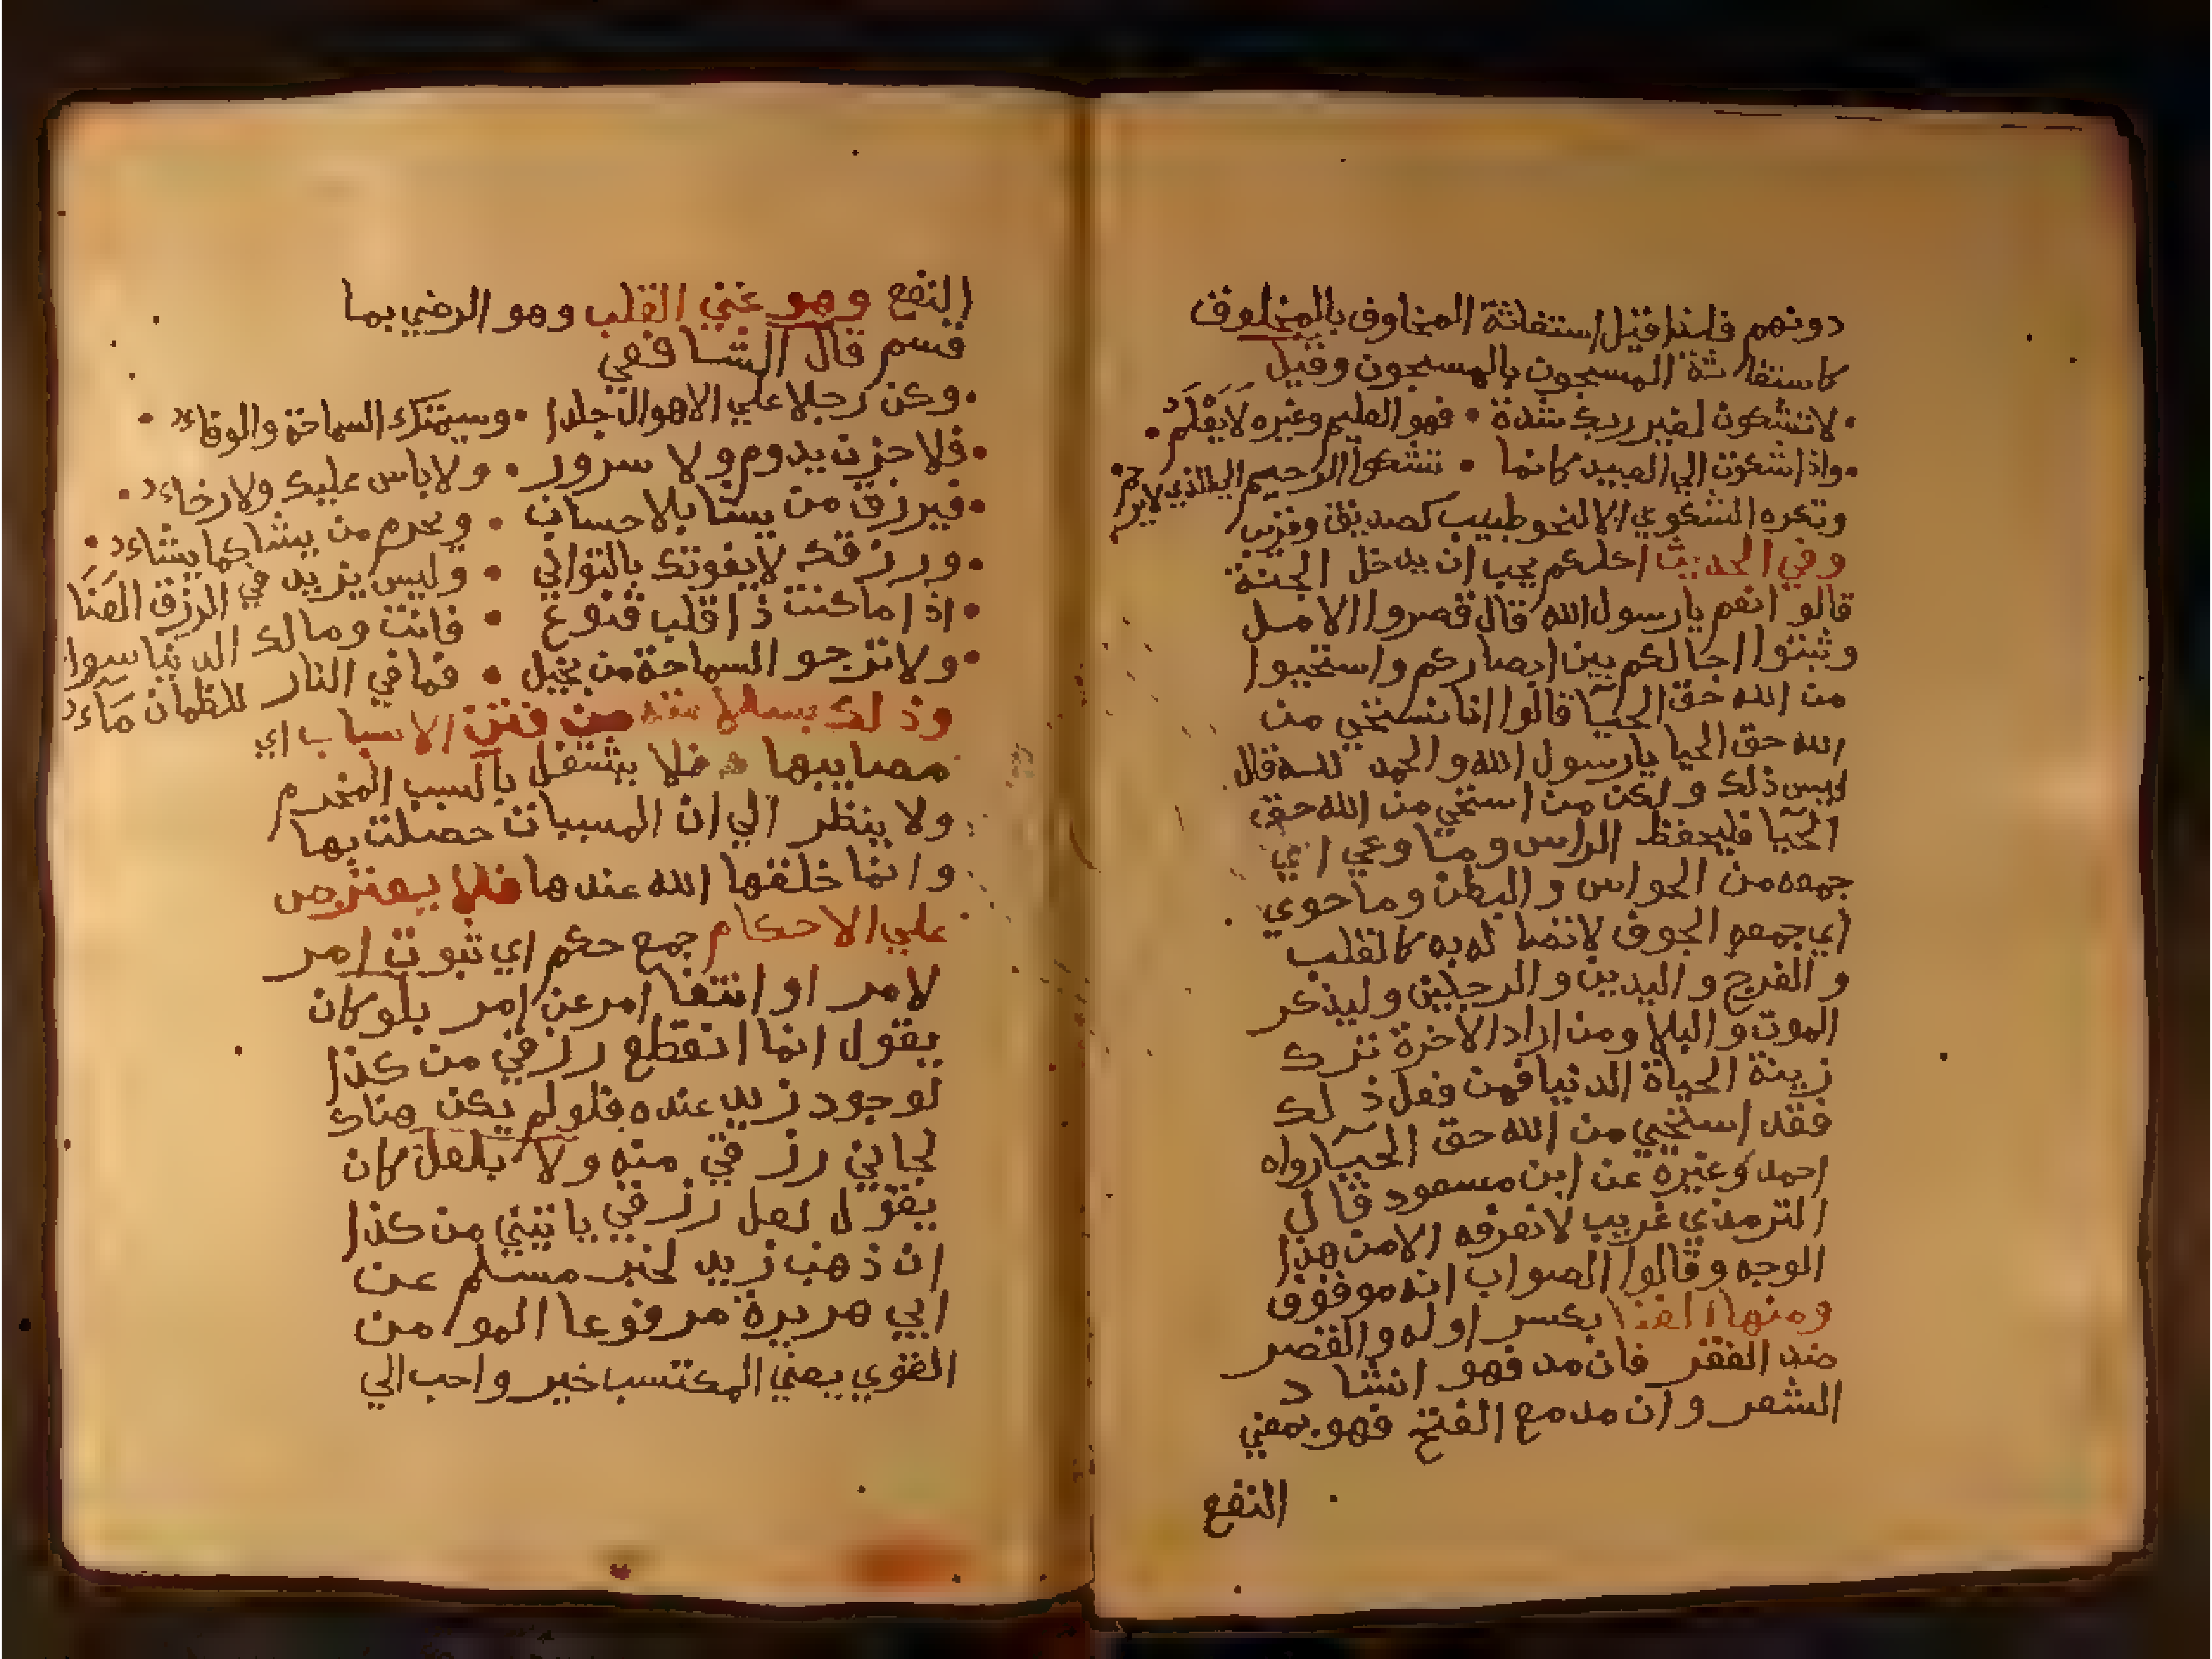 دونهم فلذا قيل استغاثة المخلوق بالمخلوق
كاستغاثة المسجون بالمسجون وقيل
لا تشكون لغير ربك شدة • فهو العليم وغيره لَا يَعْلَمُ •
واذا شكوت الي العبيد كانما • تشكوا الرحيم الي الذي لا يرحم
وتكره الشكوي الا لنحو طبيب كصديق وفزس
وفي الحديث احلكم يحب ان يدخل الجنة
قالوا نعم يا رسول الله قال قصروا الامل
وثبتوا اجالكم بين ابصاركم واستحيوا
من الله حق الحيا قالوا انا نستحي من
الله حق الحيا يا رسول الله والحمد لله قال
ليس ذلك ولكن من استحي من الله حق
الحيا فليحفظ الراس وما وعي اي
جمعه من الحواس والبطن وما حوي
اي جمعه الجوف لاتصا له به كالقلب
والفرج واليدين والرجلين وليذكر
الموت والبلا ومن اراد الاخرة ترك
زينة الحياة الدنيا فمن فعل ذلك
فقد استحيي من الله حق الحيا رواه
احمد وغيره عن ابن مسعود قال
الترمذي غريب لا نعرفه الا من هذا
الوجه وقالوا الصواب انه موقوف
ومنها الغنا بكسر اوله والقصر
ضد الفقر فان مد فهو انشا د
الشعر وان مد مع الفتح فهو بمعني
النفع
النفع وهو غني القلب وهو الرضي بما
قسم قال الشافعي
• وكن رجلا علي الاهوال جلدا • وسيمتك السماحة والوفاء •
• فلا حزن يدوم ولا سرور • ولا باس عليك ولا رخاء •
• فيرزق من يشا بلا حساب • ويحرم من يشا كما يشاء •
• ورزقك لا يفوتك بالتواني • وليس يزيد في الرزق العَنَا
• اذا ما كنت ذا قلب قنوع • فانت ومالك الدنيا سوا
• ولا ترجو السماحة من بخيل • فما في النار للظمان مَاء
وذلك بسلامته من فتن الاسباب اي
مصايبها فلا يشتغل بالسبب المخرم
ولا ينظر الي ان المسببات حصلت بها
وانما خلقها الله عندها فلا يعترص
علي الاحكام جمع حكم اي ثبوت امر
لامر او انتفا امر عن امر بلو كان
يقول انما انقطع رزقي من كذا
لوجود زيد عنده فلو لم يكن هناك
لجاني رزقي منه ولا بلعل كان
يقول لعل رزقي ياتيني من كذا
ان ذهب زيد لخبر مسلم عن
ابي هريرة مرفوعا المومن
القوي يعني المكتسب خير واحب الي